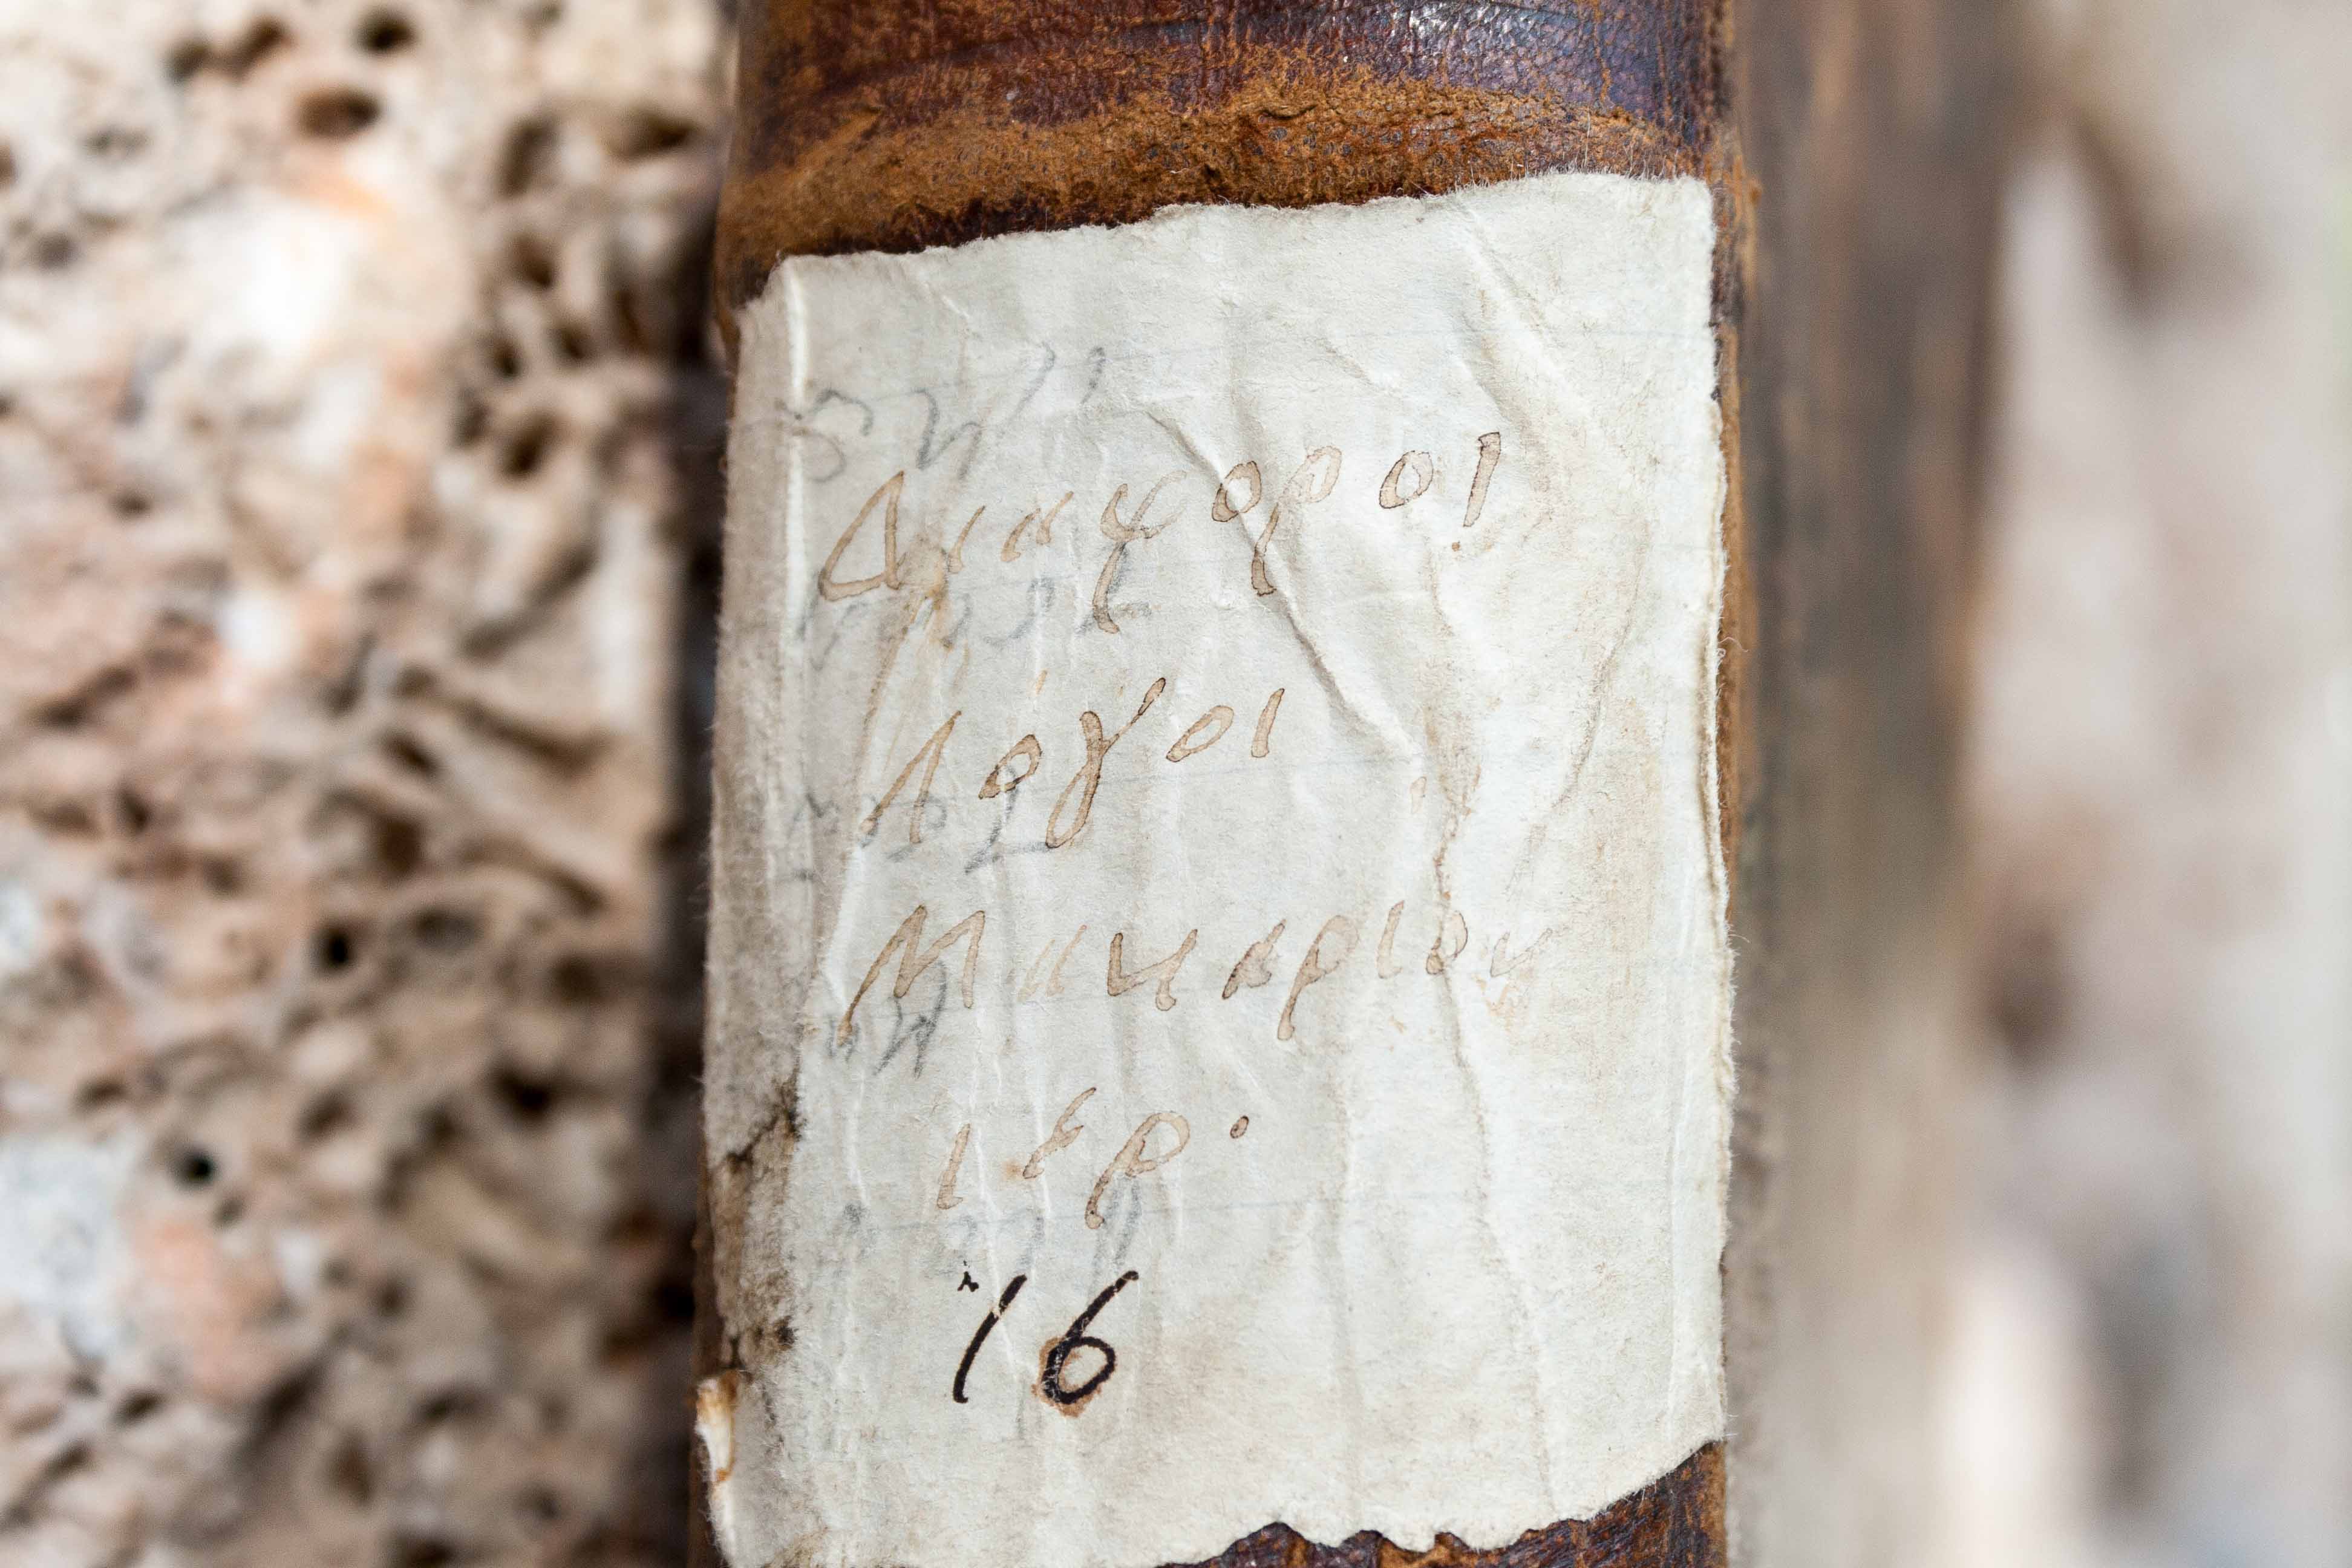 Διαφοροι
Λογοι
Μακαριου
ιερ.
16